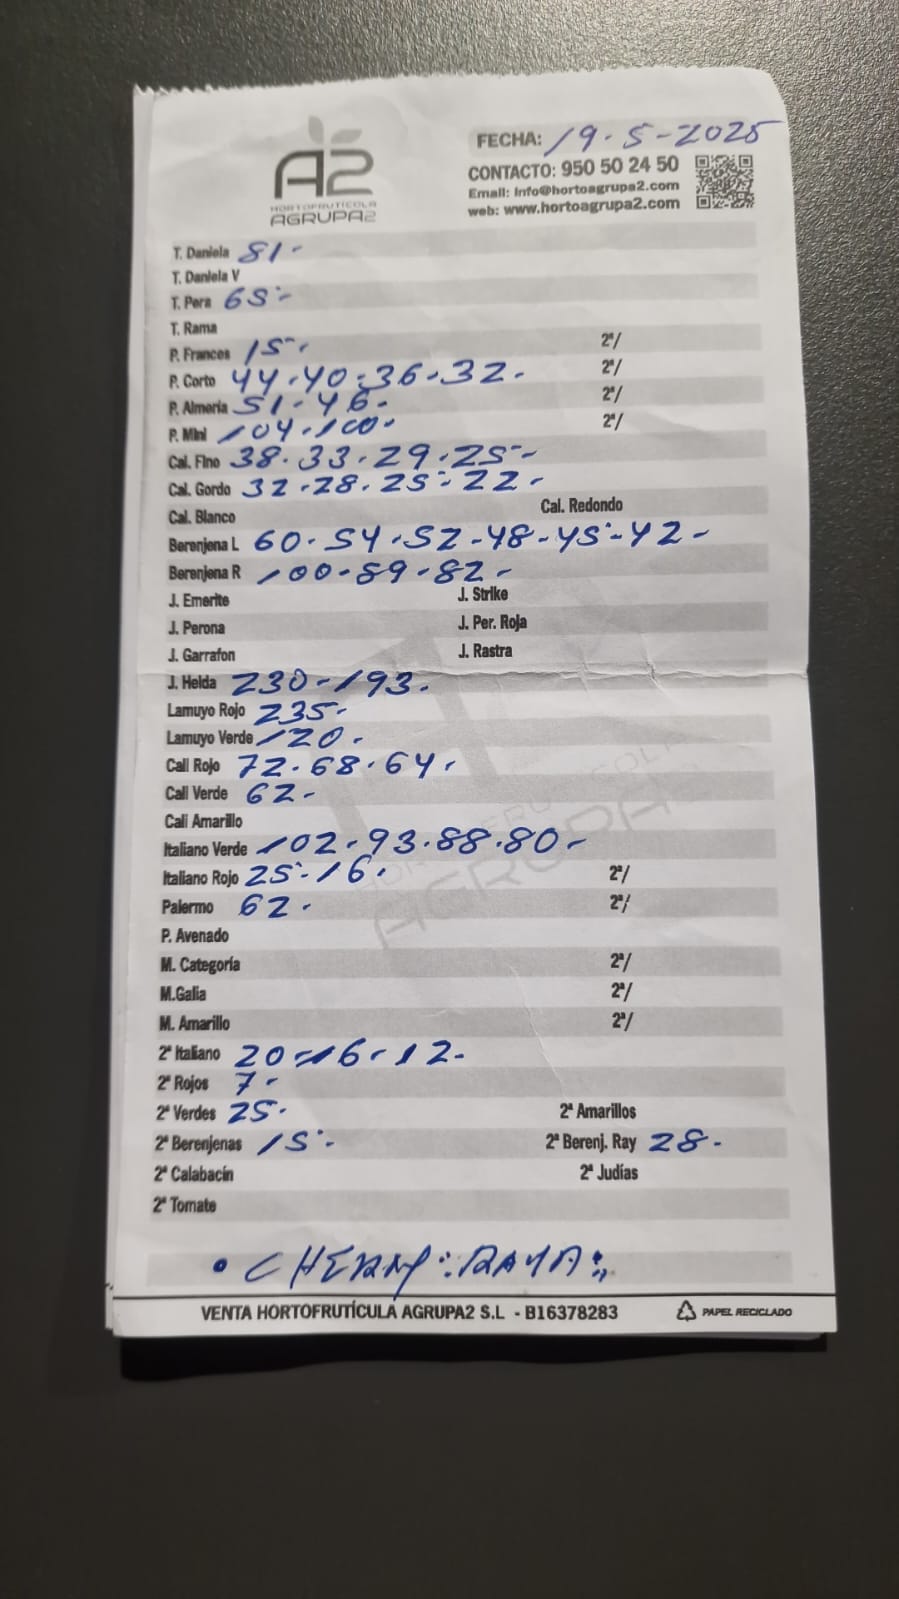 A2
HORTOFRUTÍCOLA
AGRUPA2
FECHA: 19-5-2025
CONTACTO: 950 50 24 50
Email: info@hortoagrupa2.com
web: www.hortoagrupa2.com
T. Daniela 81-
T. Daniela V
T. Pera 65-
T. Rama
P. Frances 15- 2ª/
P. Corto 44-40-36-32- 2ª/
P. Almería 51-46- 2ª/
P. Mini 104-100- 2ª/
Cal. Fino 38-33-29-25-
Cal. Gordo 32-28-25-22-
Cal. Blanco Cal. Redondo
Berenjena L 60-54-52-48-45-42-
Berenjena R 100-89-82-
J. Emerite J. Strike
J. Perona J. Per. Roja
J. Garrafon J. Rastra
J. Helda 230-193.
Lamuyo Rojo 235-
Lamuyo Verde 120-
Cali Rojo 72-68-64-
Cali Verde 62-
Cali Amarillo
Italiano Verde 102-93-88-80-
Italiano Rojo 25-16- 2ª/
Palermo 62- 2ª/
P. Avenado
M. Categoría 2ª/
M.Galia 2ª/
M. Amarillo 2ª/
2ª Italiano 20-16-12-
2ª Rojos 7-
2ª Verdes 25- 2ª Amarillos
2ª Berenjenas 15- 2ª Berenj. Ray 28-
2ª Calabacín 2ª Judías
2ª Tomate
• CHERRY: RAMA:
VENTA HORTOFRUTÍCULA AGRUPA2 S.L - B16378283 PAPEL RECICLADO